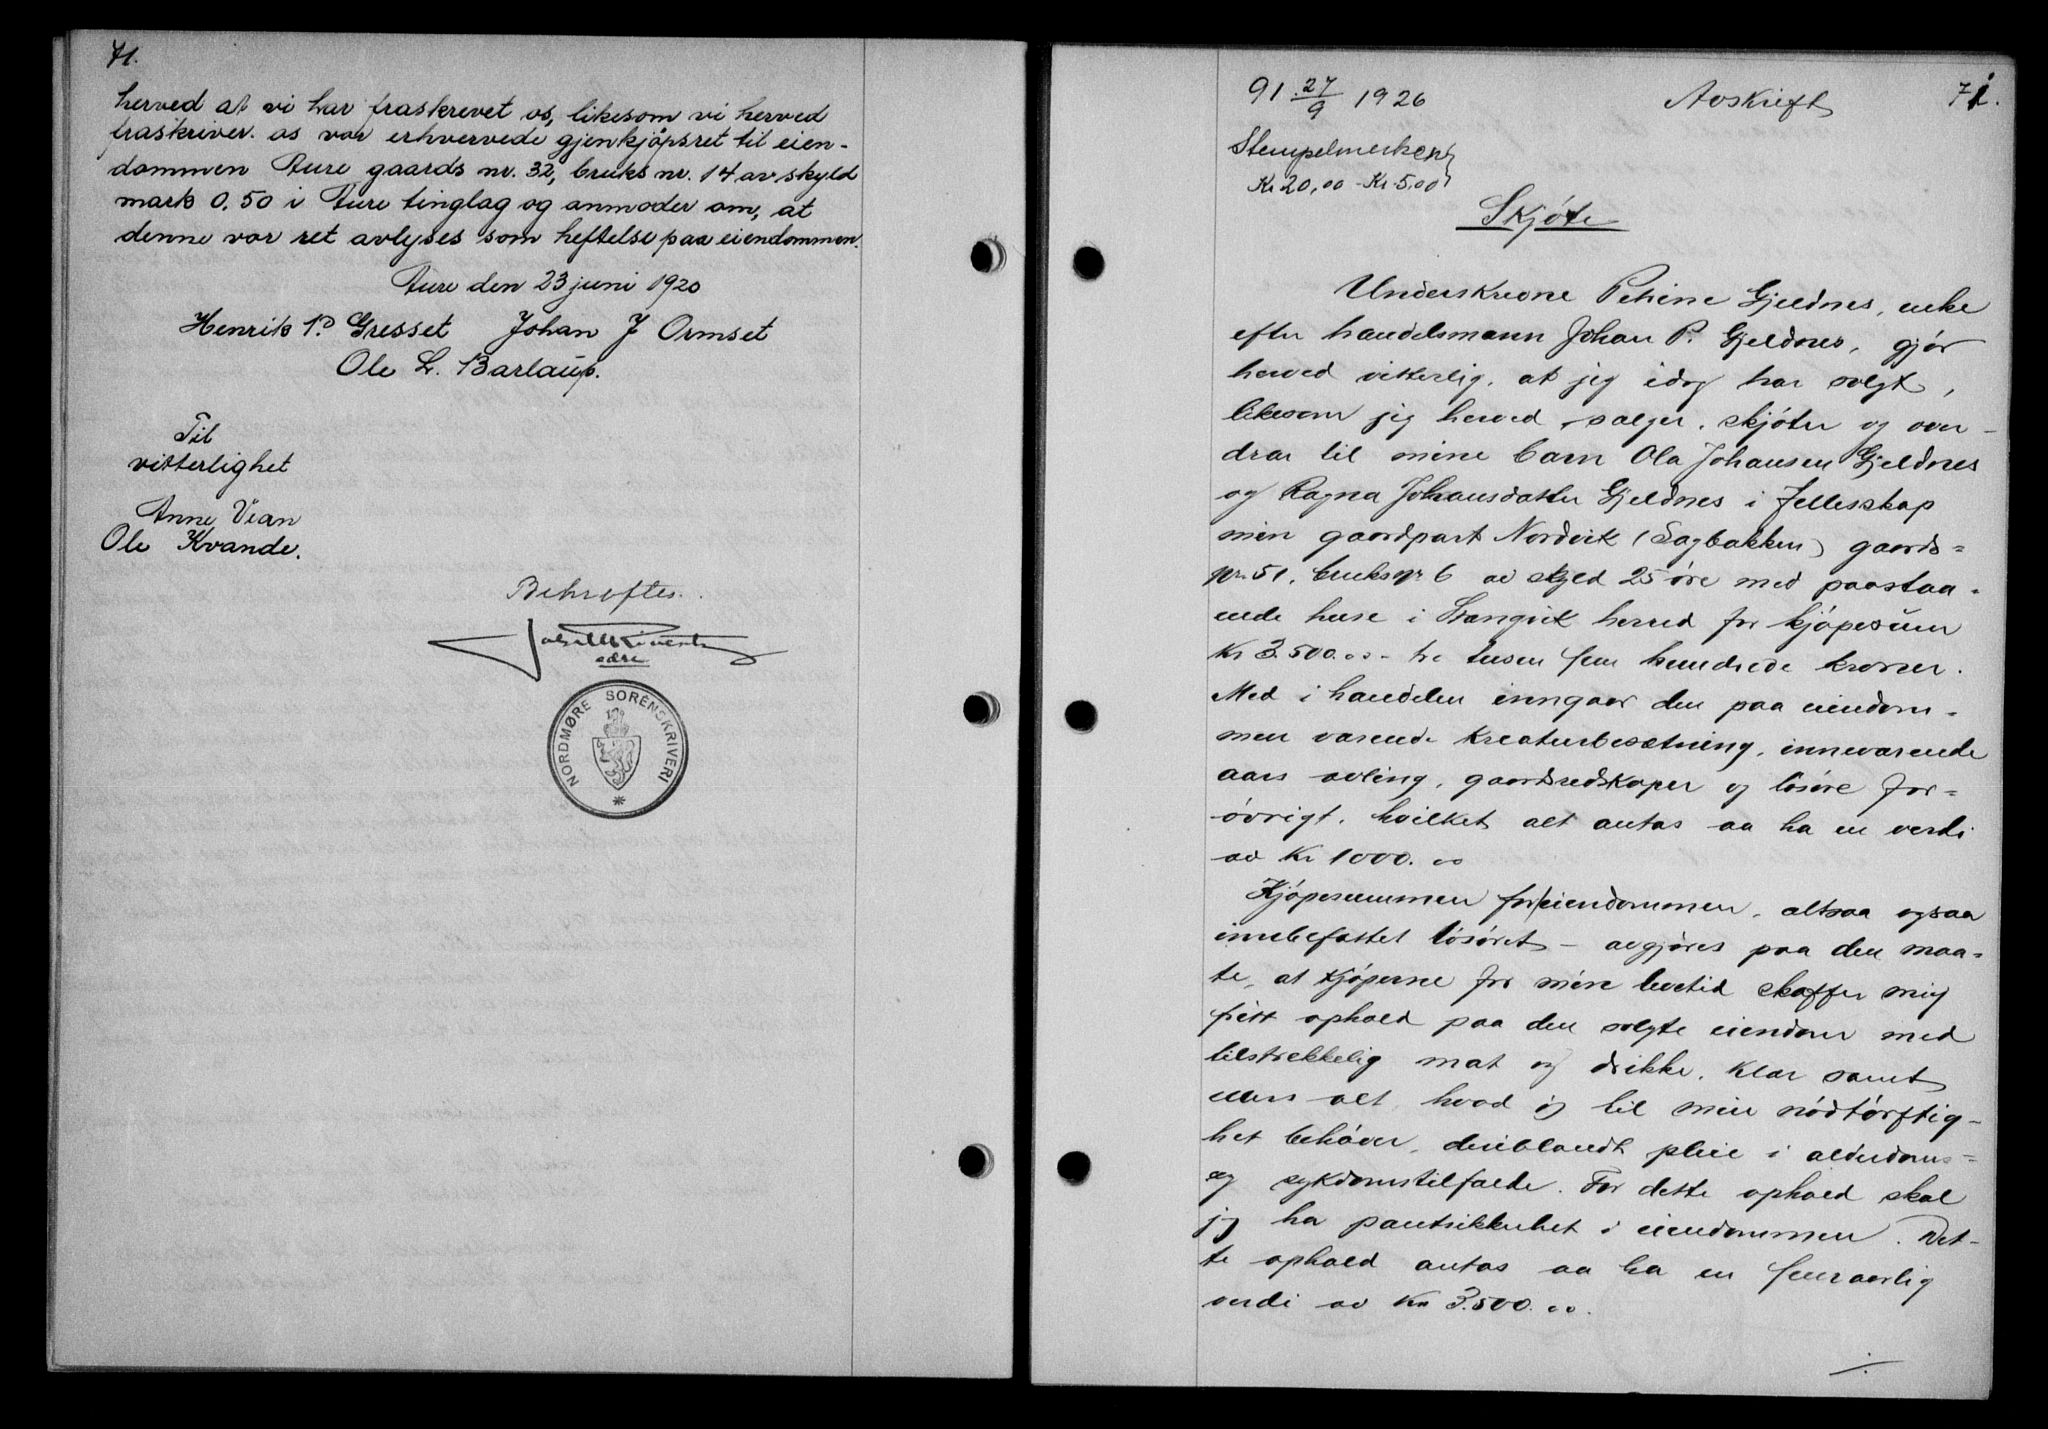 71.
herved at vi har fraskrevet os, likesom vi herved
fraskriver os vor erhvervede gjenkjøpsret til eien-
dommen Aure gaards nr. 32, bruks nr. 14 av skyld
mark 0,50 i Aure tinglag og anmoder om, at
denne vor ret avlyses som heftelse paa eiendommen.
Aure den 23 juni 1920
Henrik P. Gresset Johan J Ormset
Ole L. Barlaup.
Til
vitterlighet
Anne Vian
Ole Kvande.
Bekreftes.
NORDMØRE SORENSKRIVERI
91. 27/9 1926
Avskrift
71.
Stempelmerker
Kr 20,00 - Kr 5.00
Skjøte
Underskrevne Petrine Gjeldnes, enke
efter handelsmann Johan P. Gjeldnes, gjør
herved vitterlig, at jeg idag har solgt,
likesom jeg herved sælger, skjøter og over-
drar til mine barn Ola Johansen Gjeldnes
og Ragna Johansdatter Gjeldnes i fellesskap
min gaardpart Nordvik (Sagbakken) gaards-
nr. 51, bruksnr 6 av skyld 25 øre med paastaa-
ende huse i Stangvik herred for kjøpesum
Kr 3.500.00 - tre tusen fem hundrede kroner.
Med i handelen inngaar den paa eiendom-
men varende kreaturbesætning, inneværende
aars avling, gaardsredskaper og løsøre for-
øvrigt, hvilket alt antas aa ha en verdi
av Kr 1000.00
Kjøpesummen for eiendommen, altsaa ogsaa
innbefattet løsøret - avgjøres paa den maa-
te, at kjøperne for min levetid skaffer mig
fritt ophold paa den solgte eiendom med
tilstrekkelig mat og drikke, klær samt
ellers alt hvad jeg til min nødtørftig-
het behøver, deriblandt pleie i alderdoms-
og sykdomstilfælde. For dette ophold skal
jeg ha pantsikkerhet i eiendommen. Det-
te ophold antas aa ha en femaarlig
verdi av Kr 3.500.00.